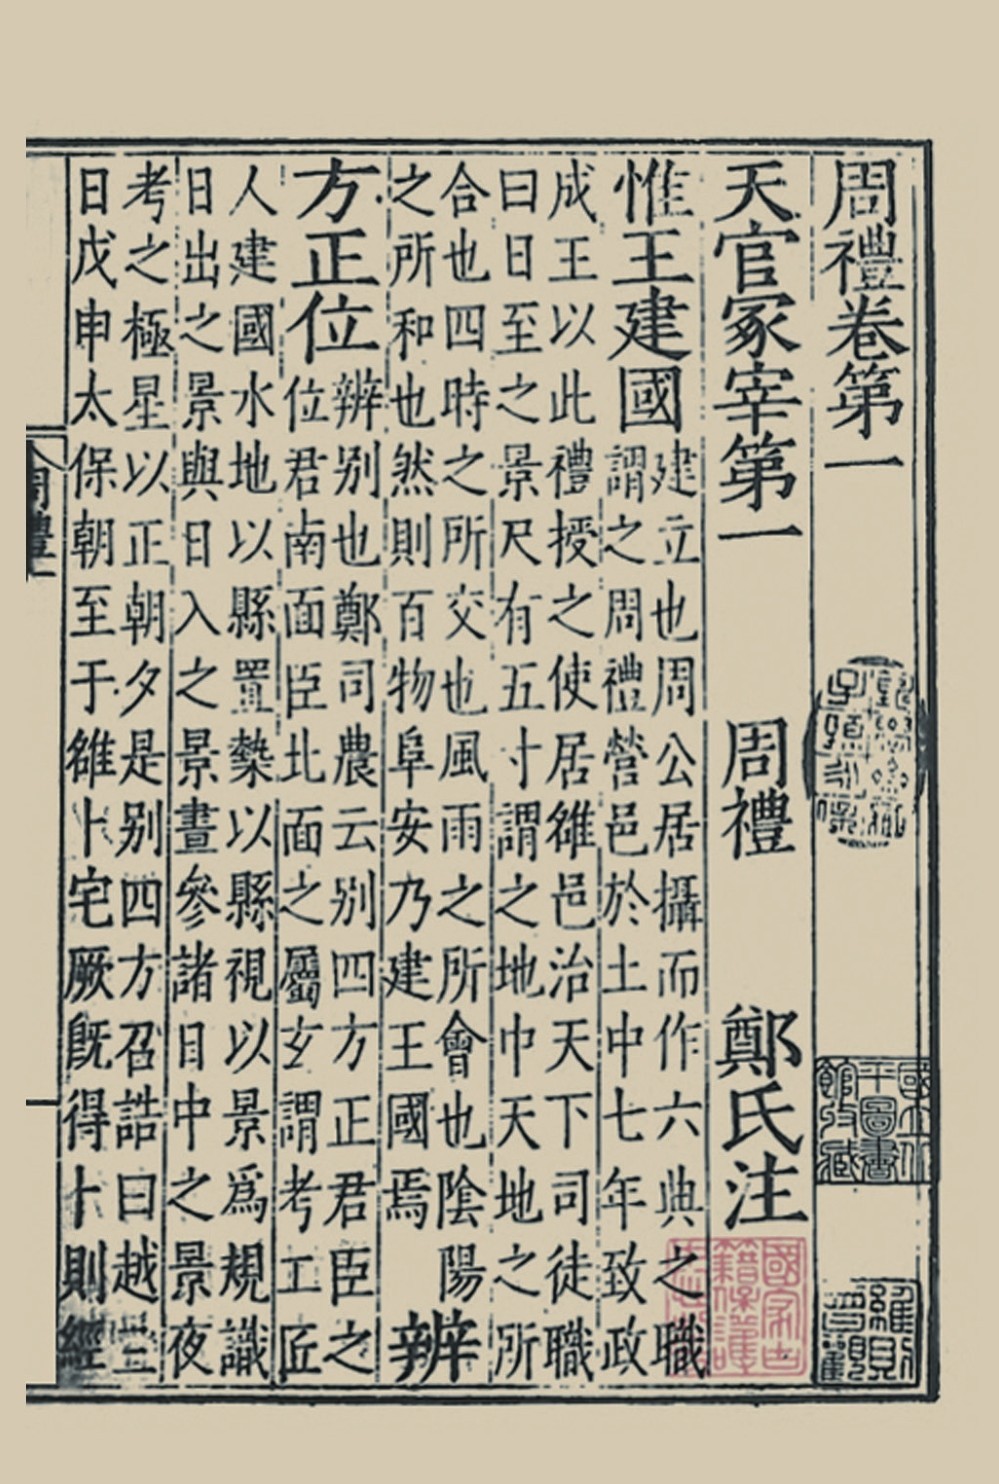 周禮卷第一
天官冢宰第一 周禮 鄭氏注
惟王建國
建立也周公居攝而作六典之職
謂之周禮營邑於土中七年致政
成王以此禮授之使居雒邑治天下司徒職
曰日至之景尺有五寸謂之地中天地之所
合也四時之所交也風雨之所會也陰陽
之所和也然則百物阜安乃建王國焉
辨
方正位
辨别也鄭司農云别四方正君臣之
位君南面臣北面之屬玄謂考工匠
人建國水地以縣置槷以縣視以景爲規識
日出之景與日入之景晝參諸日中之景夜
考之極星以正朝夕是别四方召誥曰越三
日戊申太保朝至于雒卜宅厥旣得卜則經
周禮一